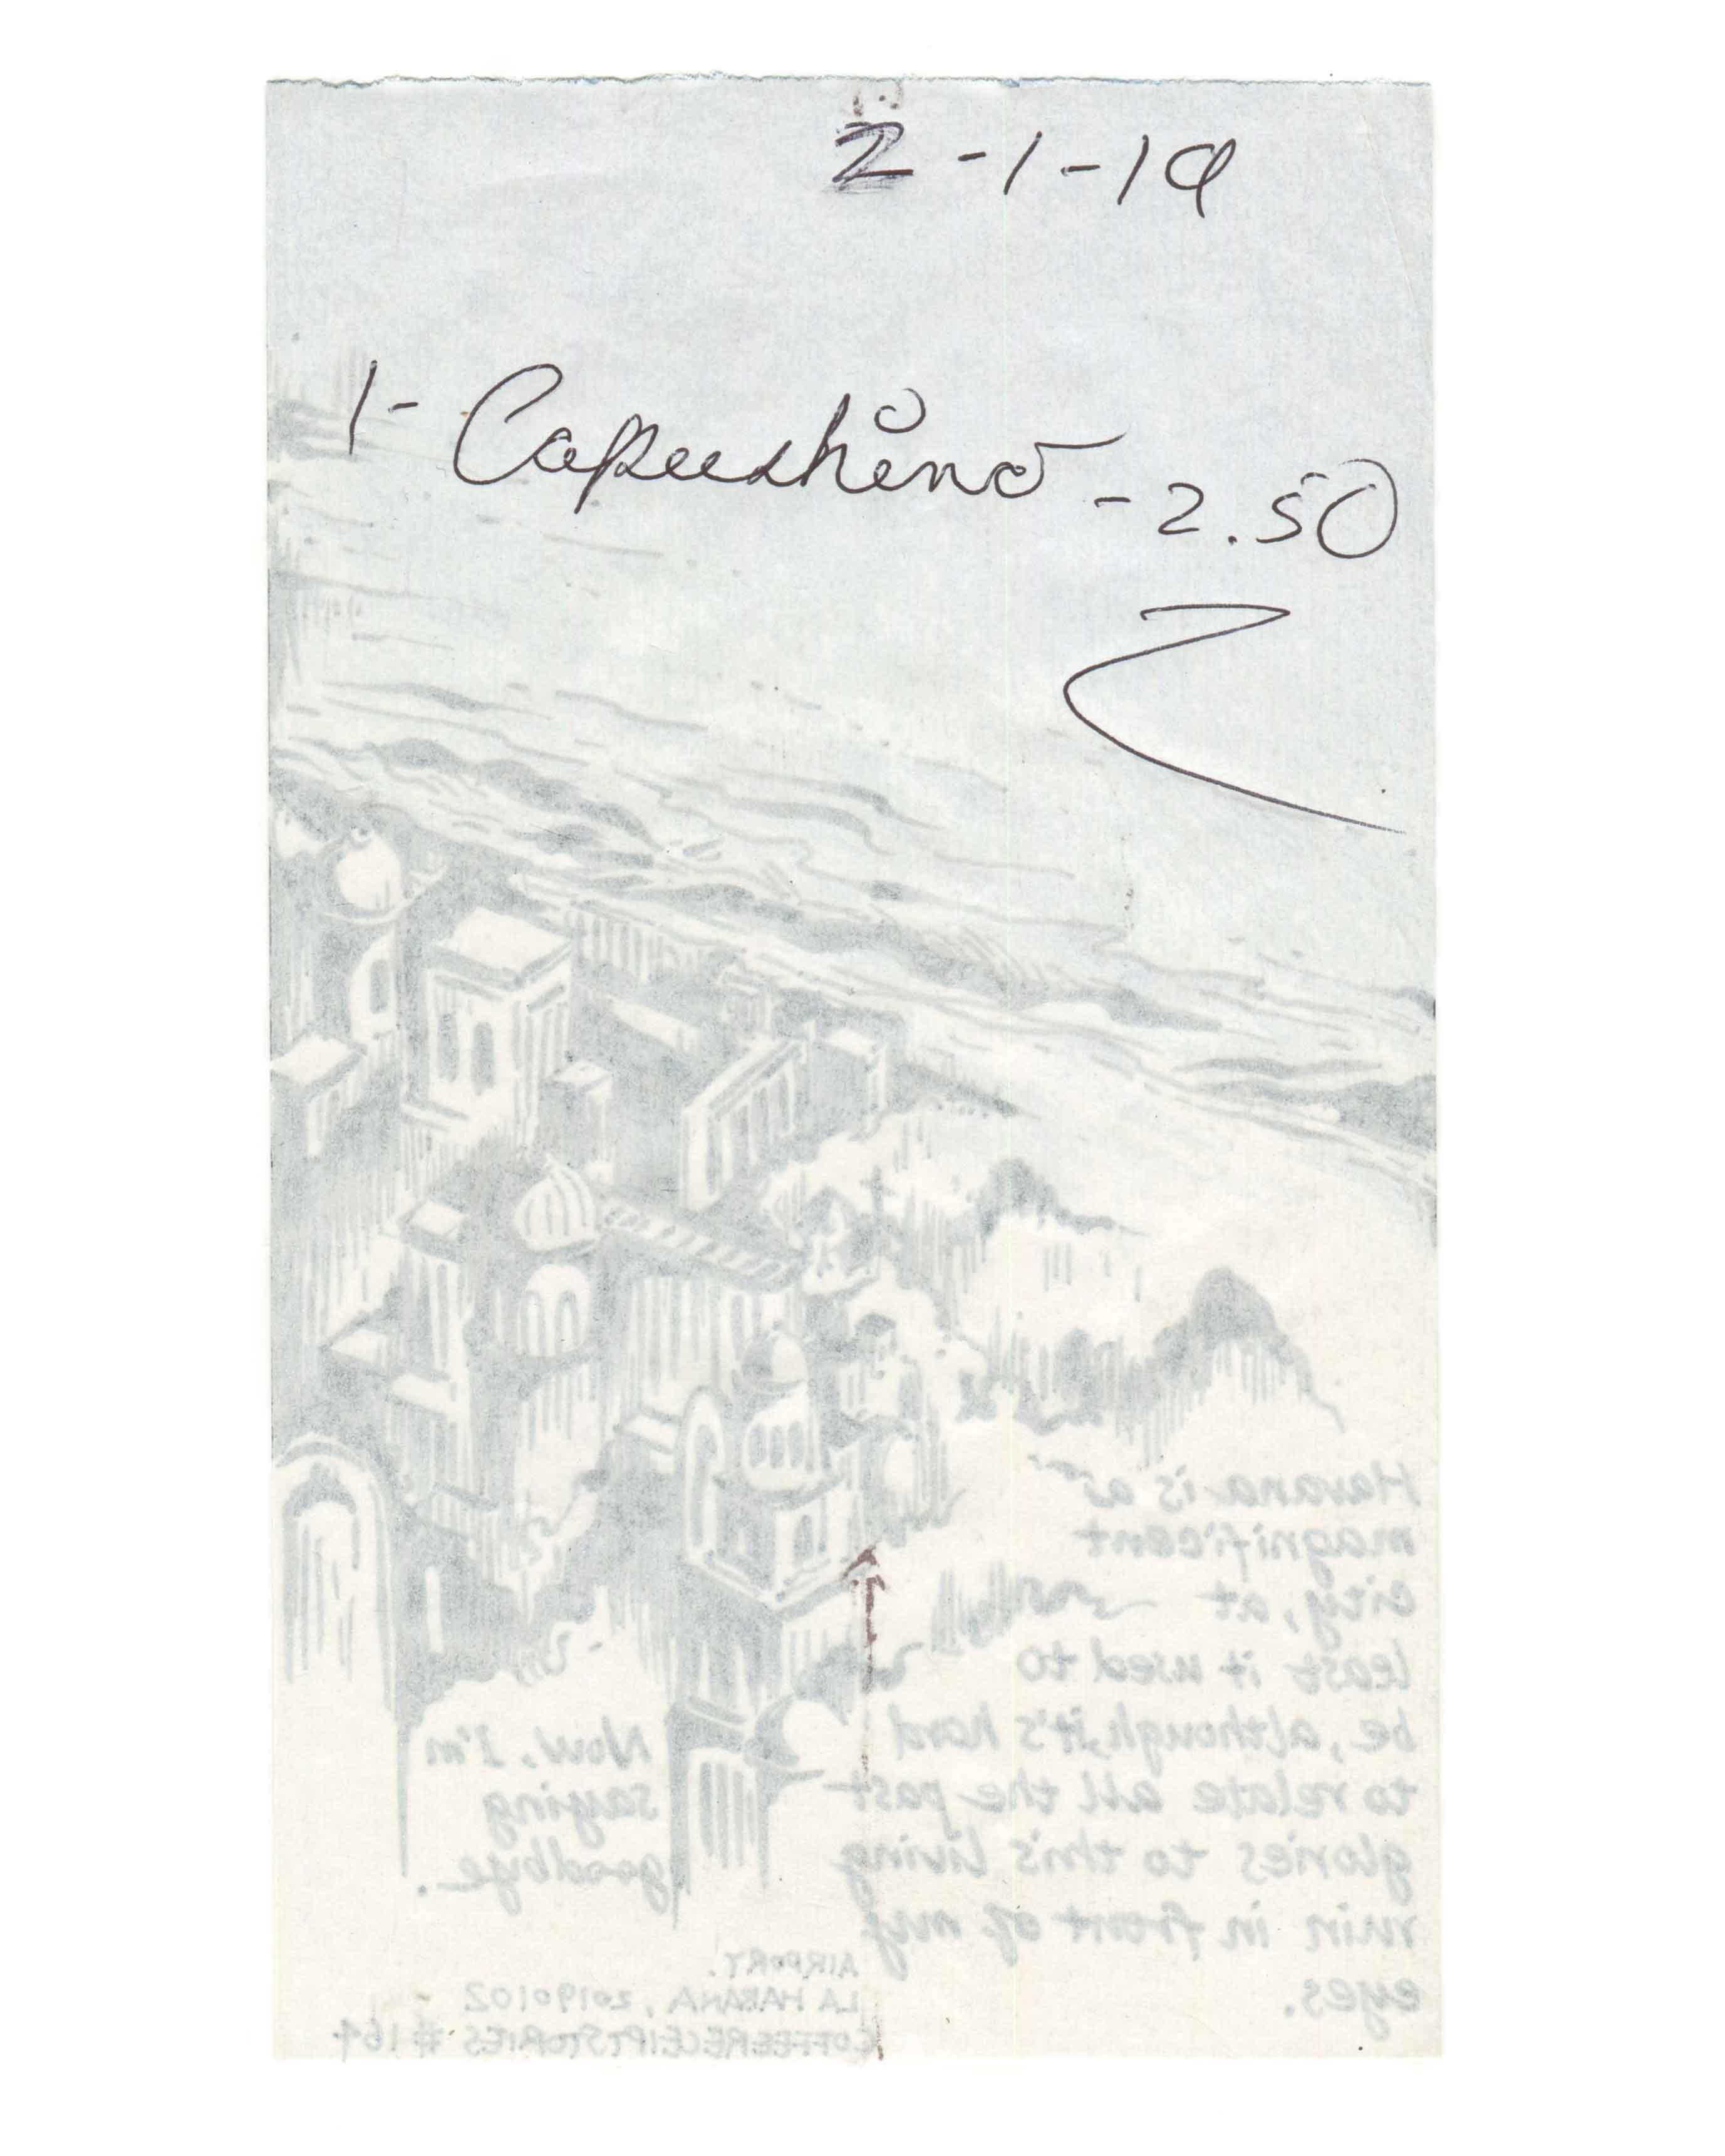 2-1-19
1- Capushino - 2.50
Havana is as
magnificent
city, at
least it used to
be, although, it's hard
to relate all the past
glories to this living
ruin in front of my
eyes.
Now, I'm
saying
goodbye.
AIRPORT.
LA HABANA, 20190102
COFFEERECEIPTSTORIES #164